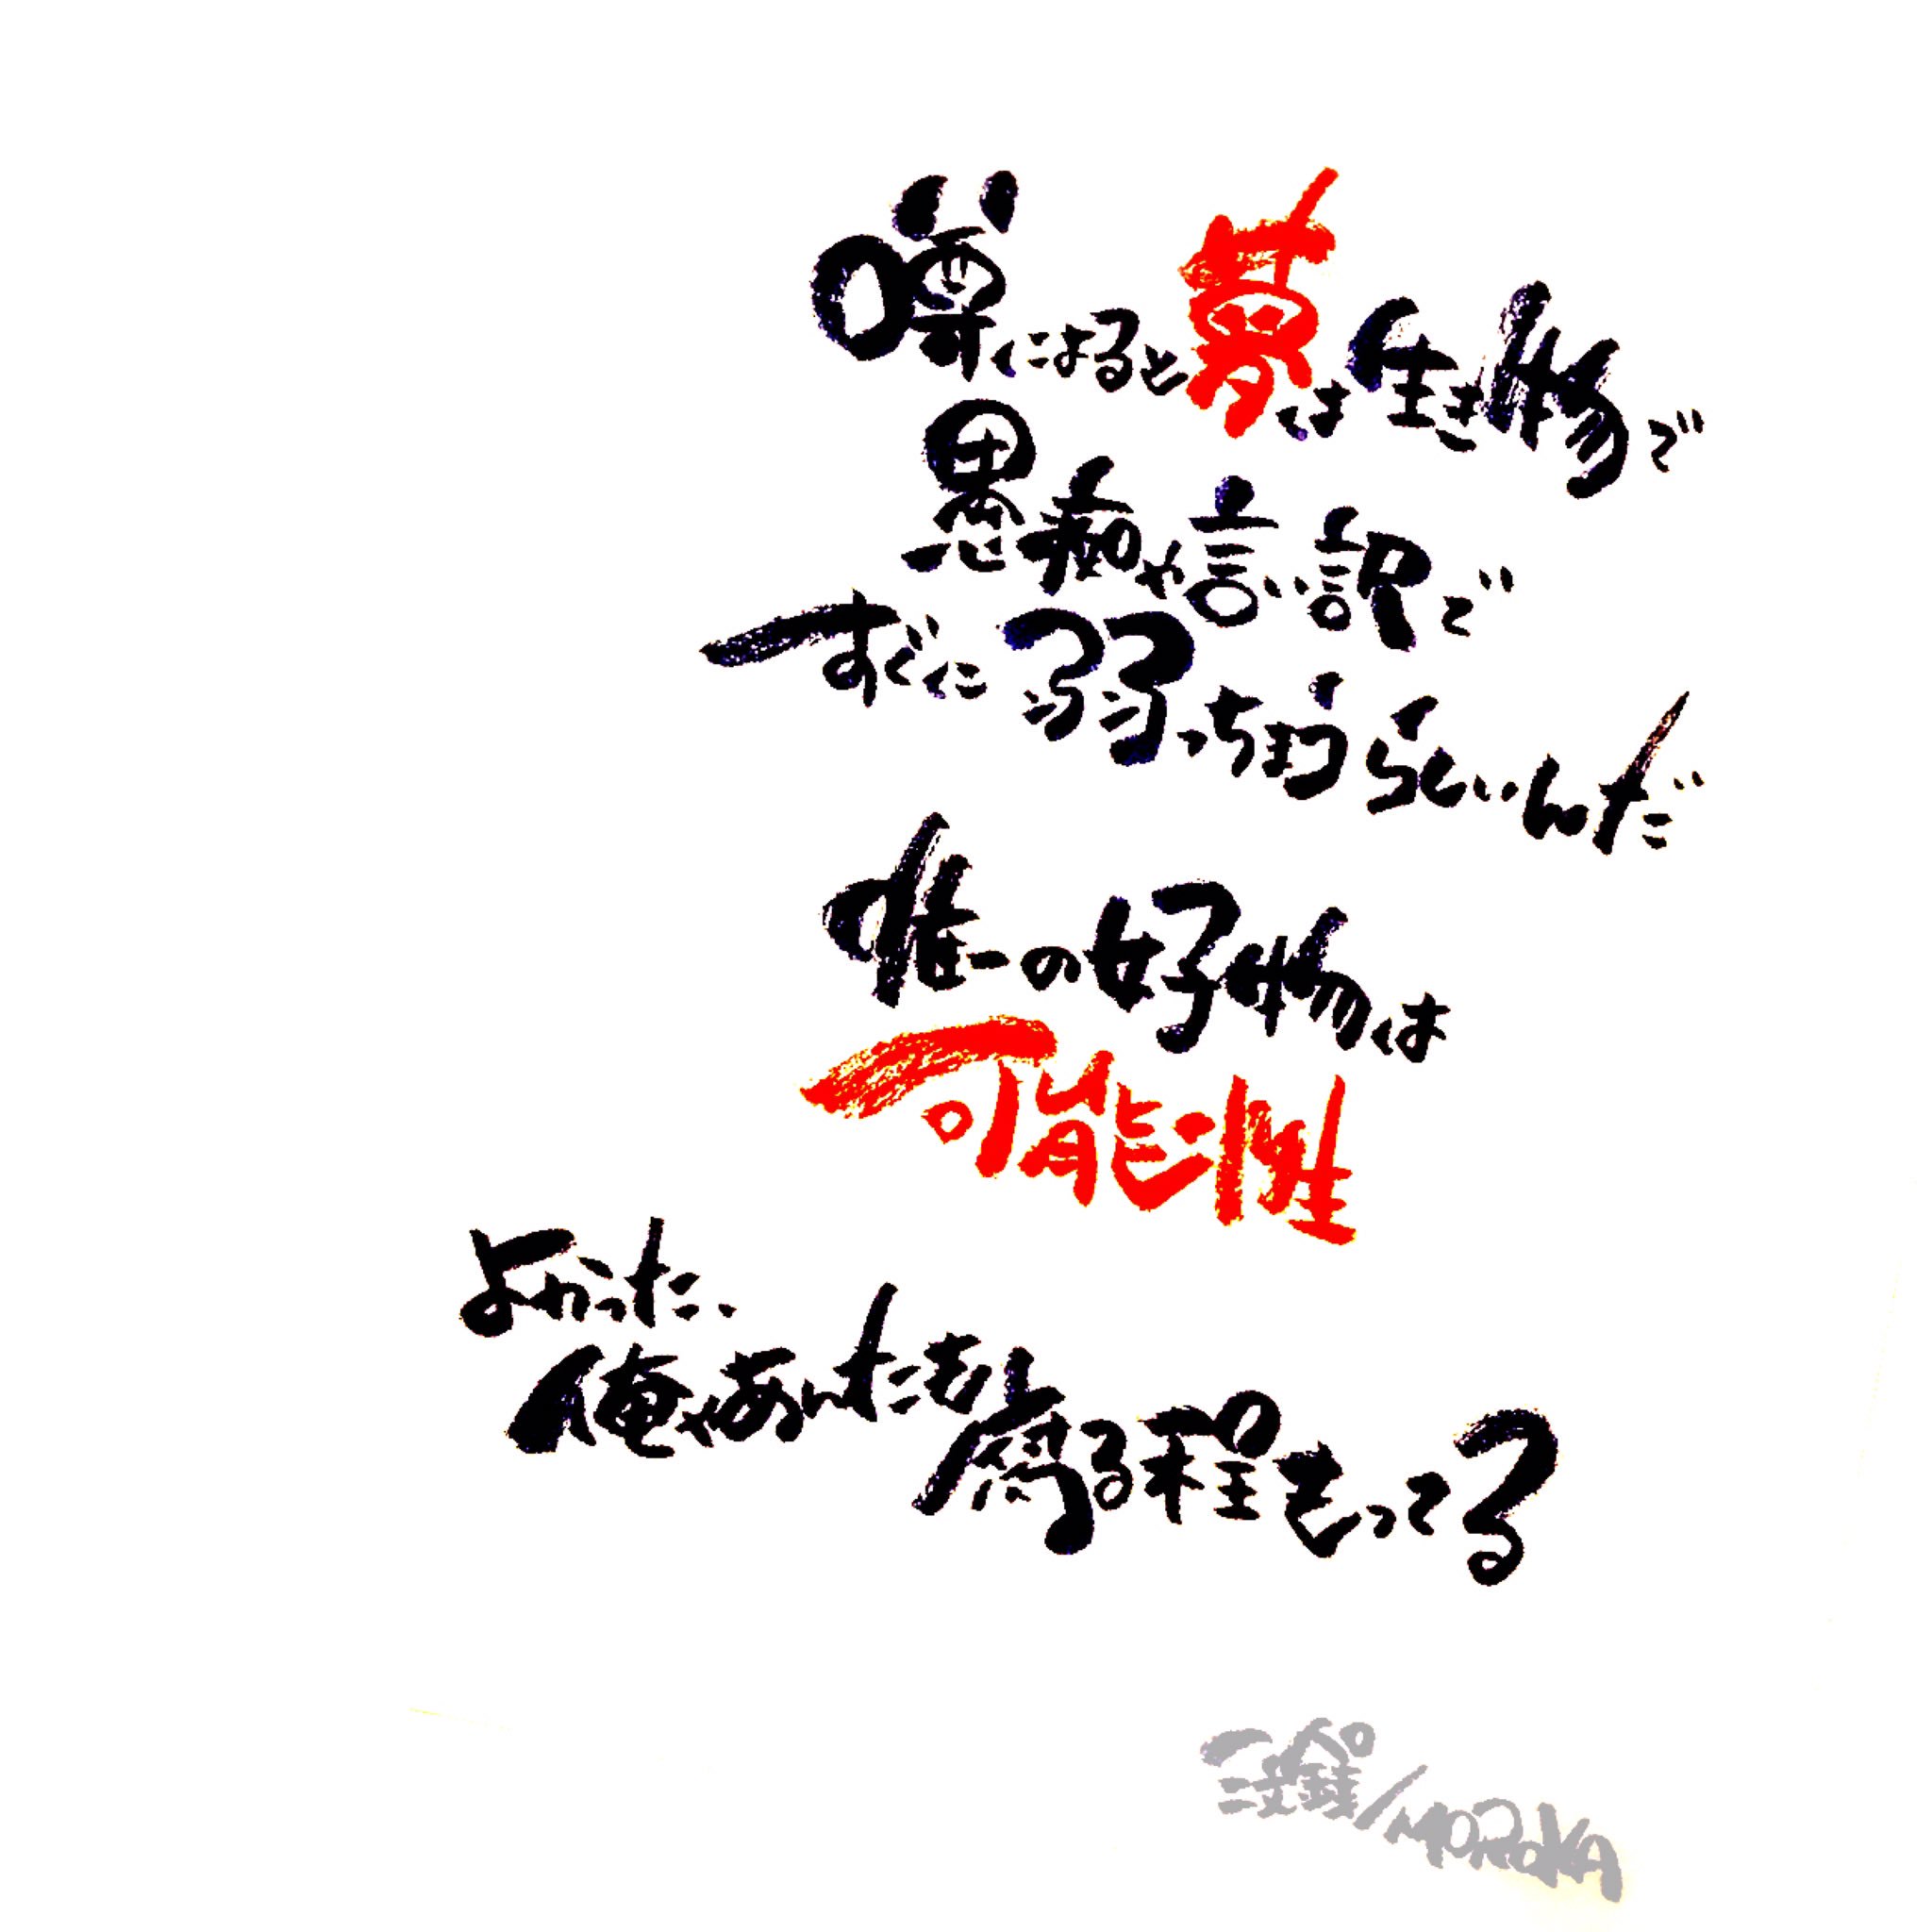 噂によると夢は生き物で
愚痴や言い訳で
すぐに弱っちまうらしいんだ
唯一の好物は
可能性
よかった..
俺やあんたも腐る程もってる
/MOROKA